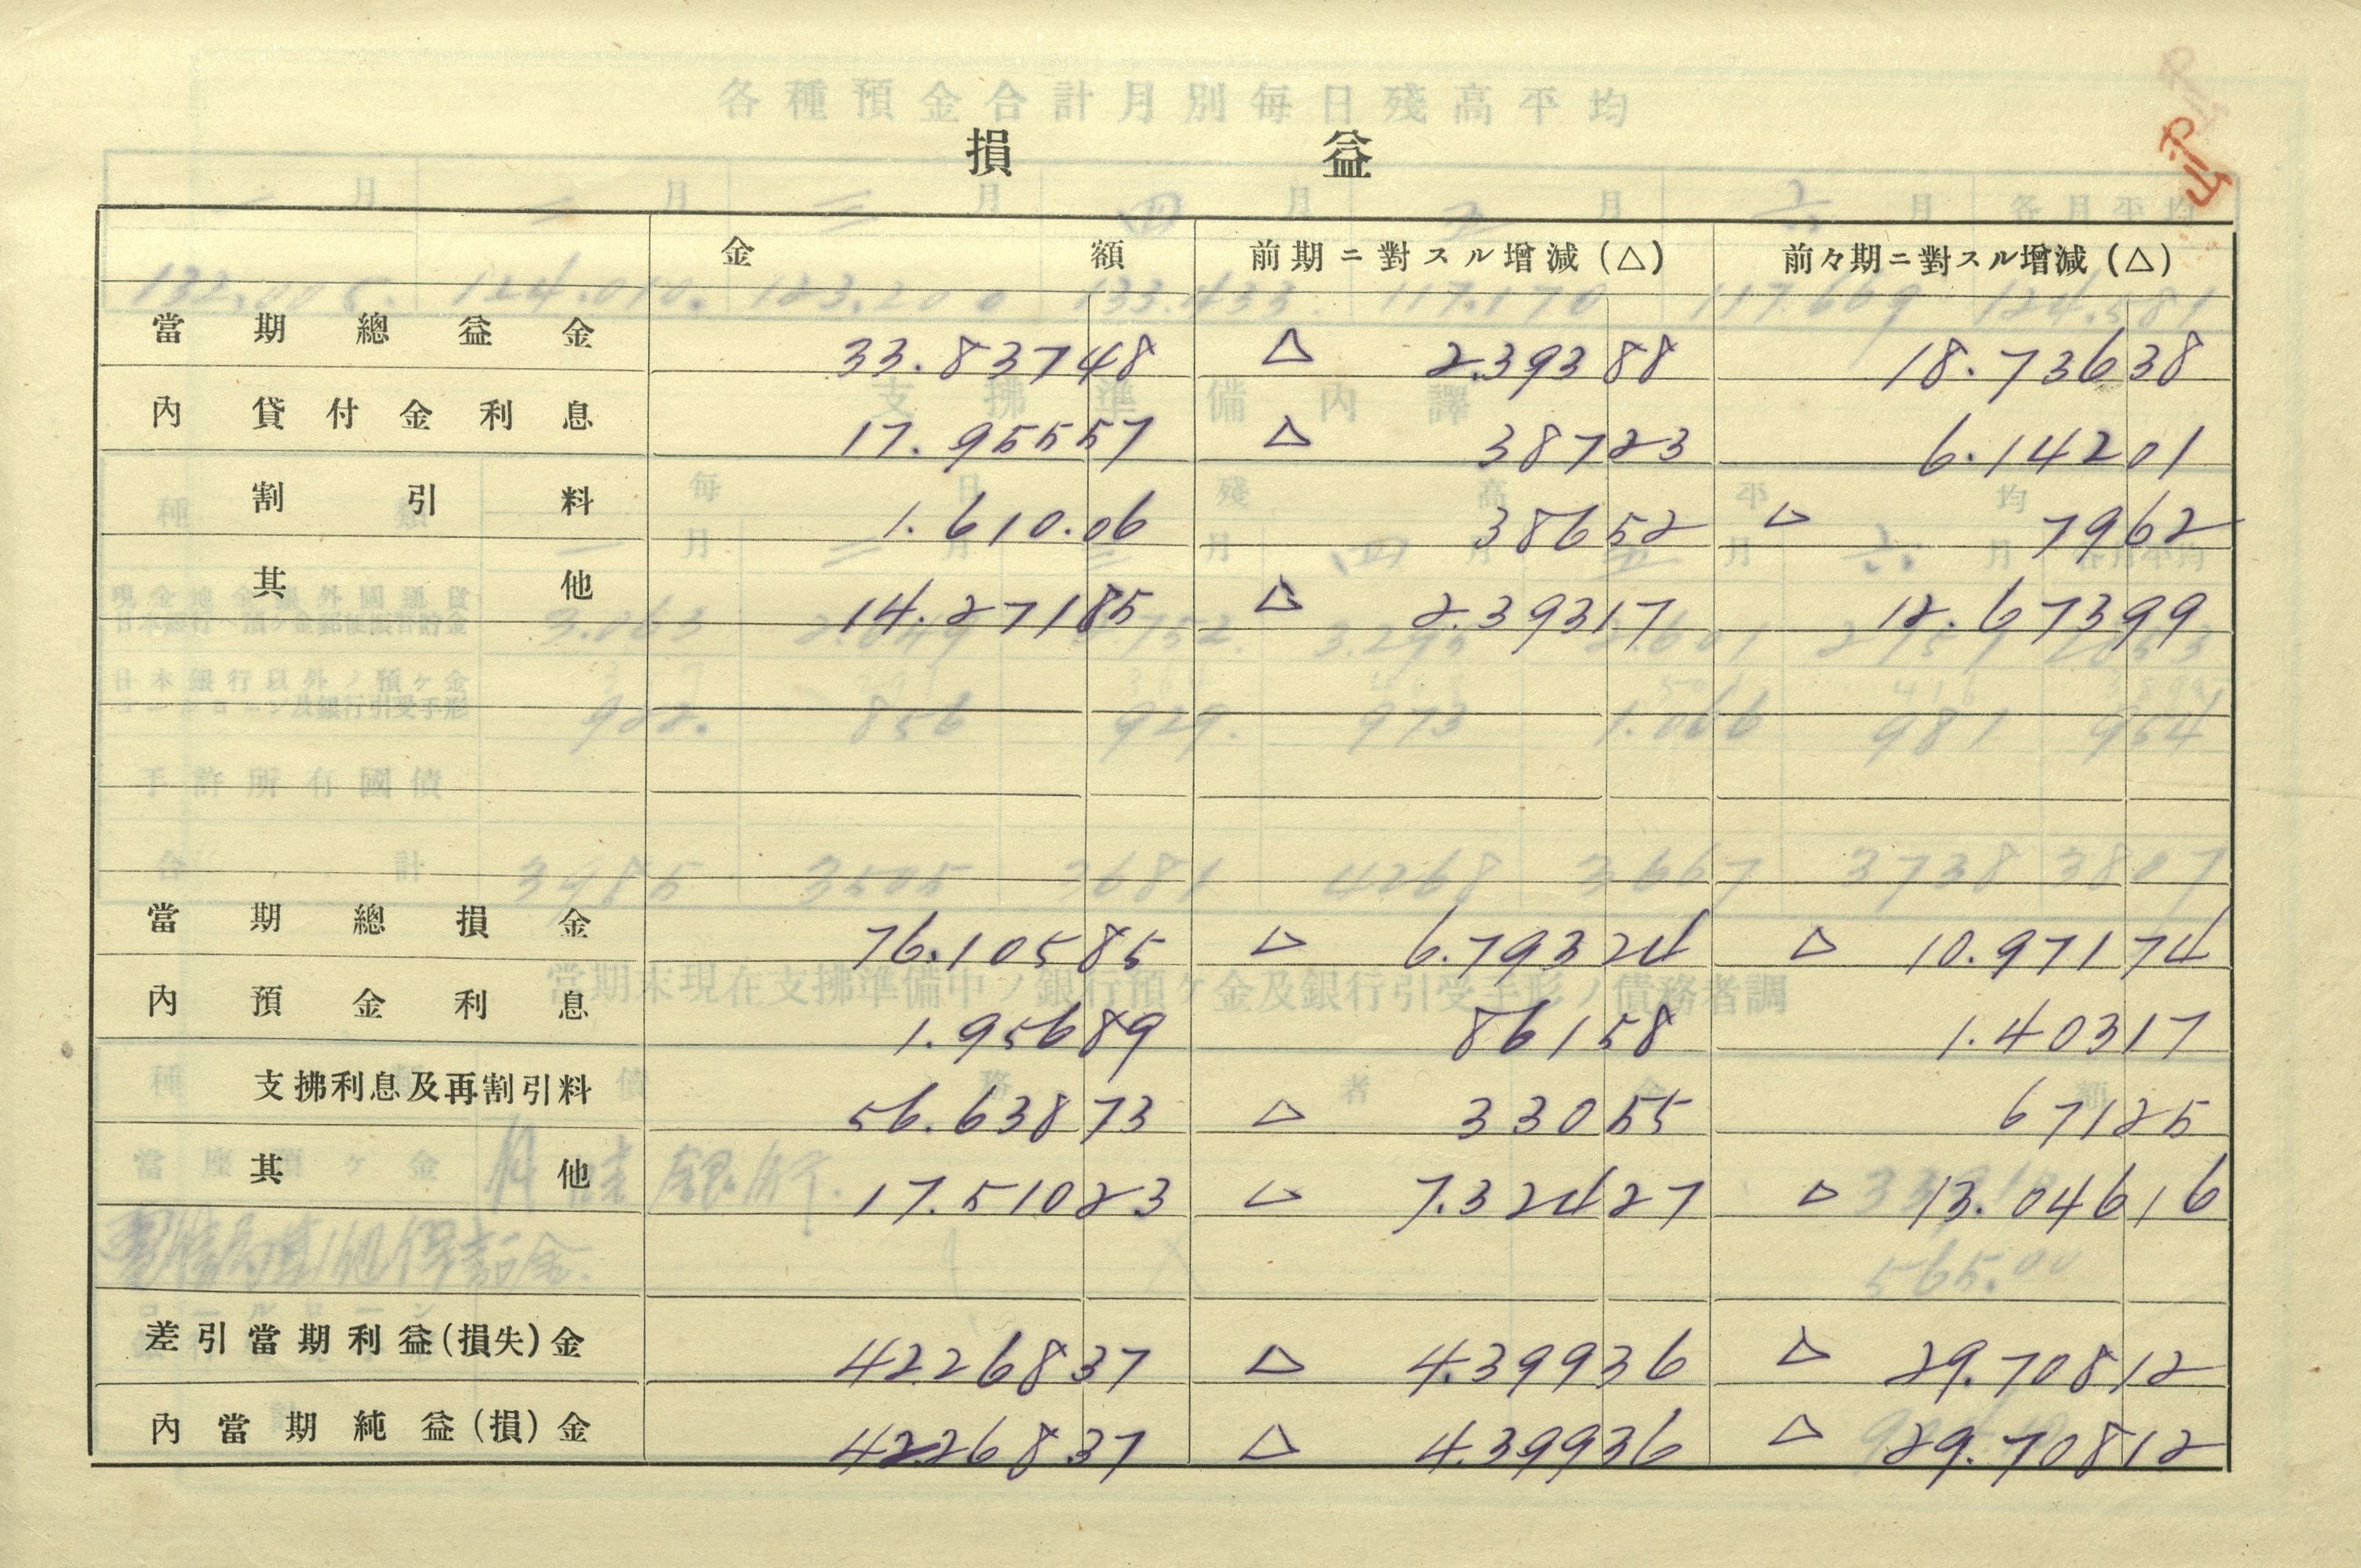 損益
金額 前期ニ對スル增減(△) 前々期ニ對スル增減(△)
當期總益金 33.837 48 △ 2.393 88 18.736 38
內 貸付金利息 17.955 57 △ 387 23 6.142 01
割引料 1.610.06 386 52 △ 79 62
其他 14.271 85 △ 2.393 17 12.673 99
當期總損金 76.105 85 △ 6.793 24 △ 10.971 74
內 預金利息 1.956 89 861 58 1.403 17
支拂利息及再割引料 56.638 73 △ 330 55 671 25
其他 17.510 23 △ 7.324 27 △ 13.046 16
差引當期利益(損失)金 42.268 37 △ 4.399 36 △ 29.708 12
內當期純益(損)金 42.268 37 △ 4.399 36 △ 29.708 12